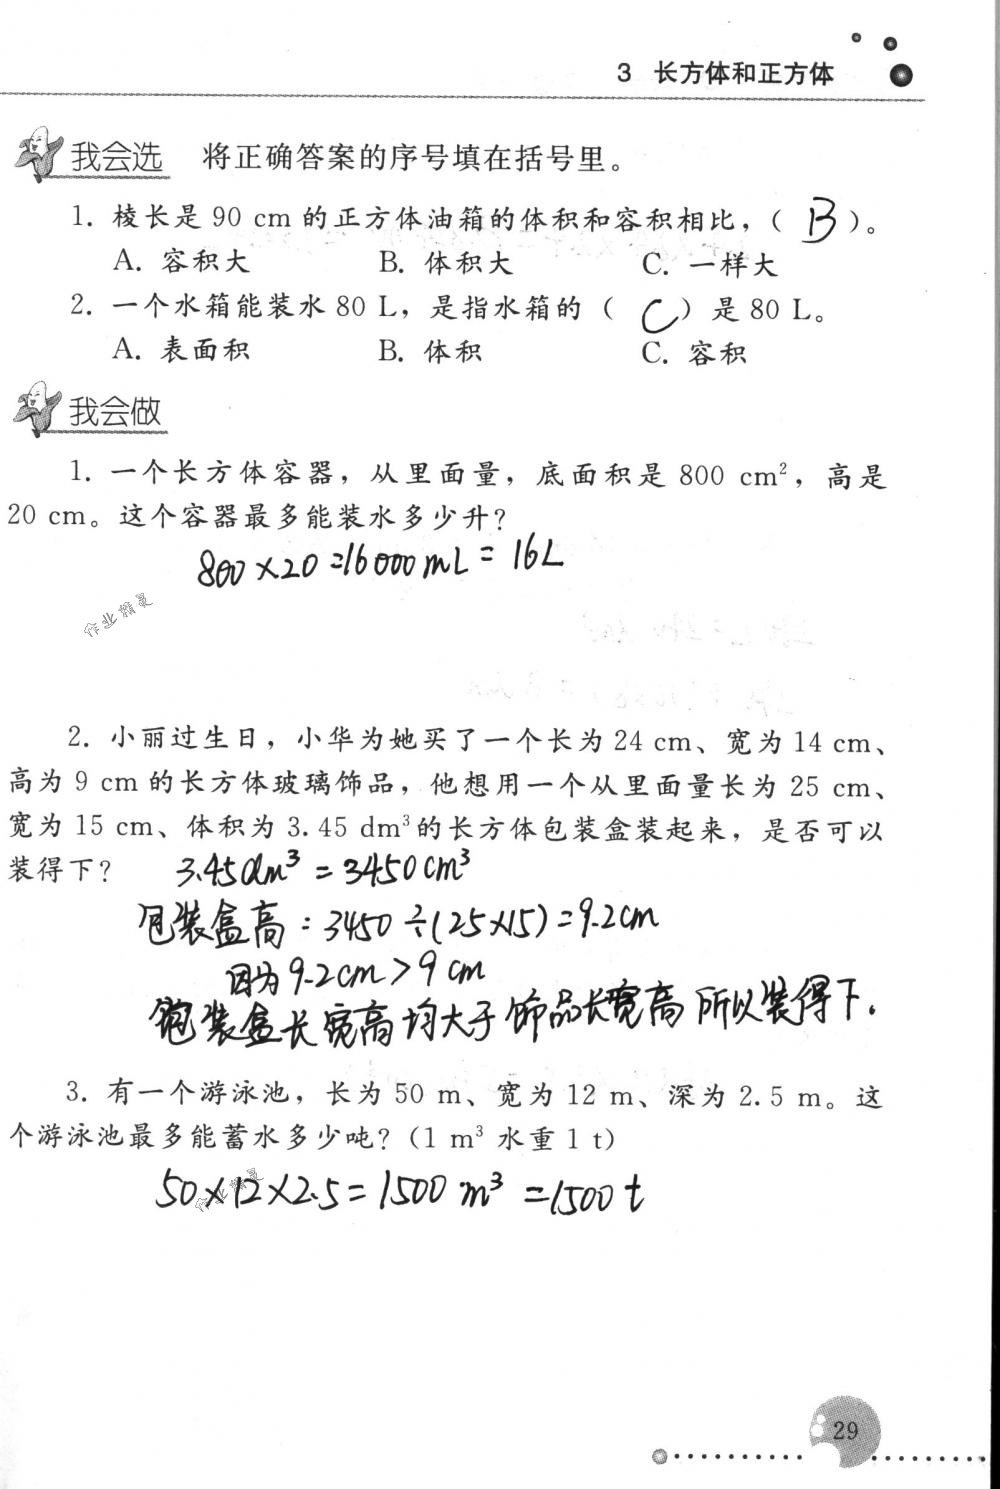 3 长方体和正方体
我会选 将正确答案的序号填在括号里。
1. 棱长是 90 cm 的正方体油箱的体积和容积相比，( B )。
A. 容积大 B. 体积大 C. 一样大
2. 一个水箱能装水 80 L，是指水箱的 ( C ) 是 80 L。
A. 表面积 B. 体积 C. 容积
我会做
1. 一个长方体容器，从里面量，底面积是 800 cm²，高是
20 cm。这个容器最多能装水多少升?
800×20=16000mL=16L
作业精灵
2. 小丽过生日，小华为她买了一个长为 24 cm、宽为 14 cm、
高为 9 cm 的长方体玻璃饰品，他想用一个从里面量长为 25 cm、
宽为 15 cm、体积为 3.45 dm³的长方体包装盒装起来，是否可以
装得下? 3.45dm³=3450cm³
包装盒高：3450÷(25×15)=9.2cm
因为9.2cm>9cm
包装盒长宽高均大于饰品长宽高所以装得下.
3. 有一个游泳池，长为 50 m、宽为 12 m、深为 2.5 m。这
个游泳池最多能蓄水多少吨? (1 m³ 水重 1 t)
50×12×2.5=1500m³=1500t
作业精灵
29